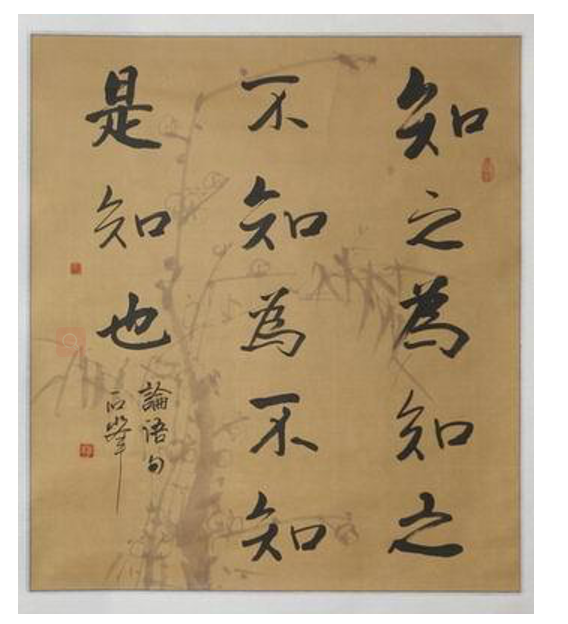 知之為知之
不知為不知
是知也
論语句
石峰